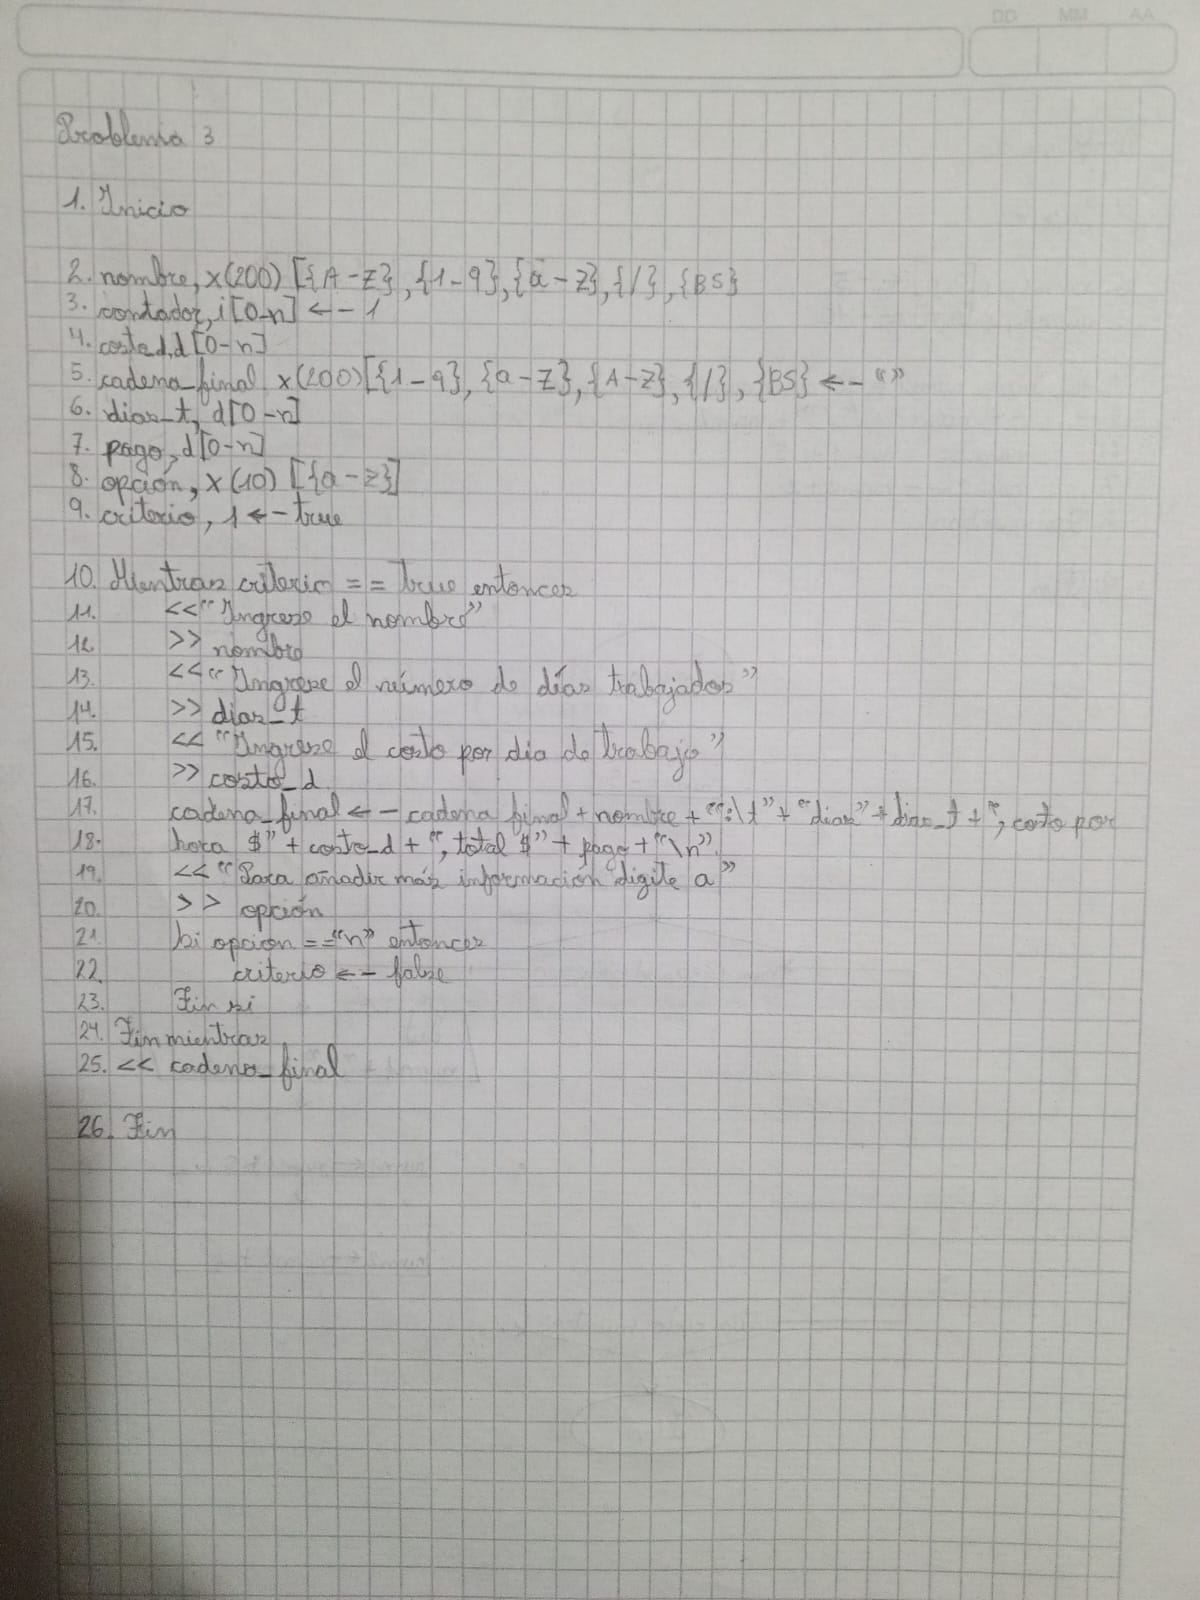 DD MM AA
Problema 3
1. Inicio
2. nombre, x(200) [{A-Z}, {1-9}, {a-z}, {/}, {BS}
3. contador, i[0-n] <-- 1
4. costo_d, d[0-n]
5. cadena_final x(200)[{1-9}, {a-z}, {A-z}, {/}, {BS} <-- “”
6. dias_t, d[0-n]
7. pago, d[0-n]
8. opción, x(10) [{a-z}]
9. criterio, 1 <-- true
10. Mientras criterio == true entonces
11. <<“Ingrese el nombre”
12. >> nombre
13. <<“Ingrese el número de días trabajados”
14. >> dias_t
15. << “Ingrese el costo por dia de trabajo”
16. >> costo_d
17. cadena_final <-- cadena final + nombre + “:\t” + “dias” + dias_t + “, costo por
18. hora $” + costo_d + “, total $” + pago + “\n”
19. << “Para añadir más información digite a”
20. >> opción
21. Si opcion == “n” entonces
22. criterio <-- false
23. Fin si
24. Fin mientras
25. << cadena_final
26. Fin